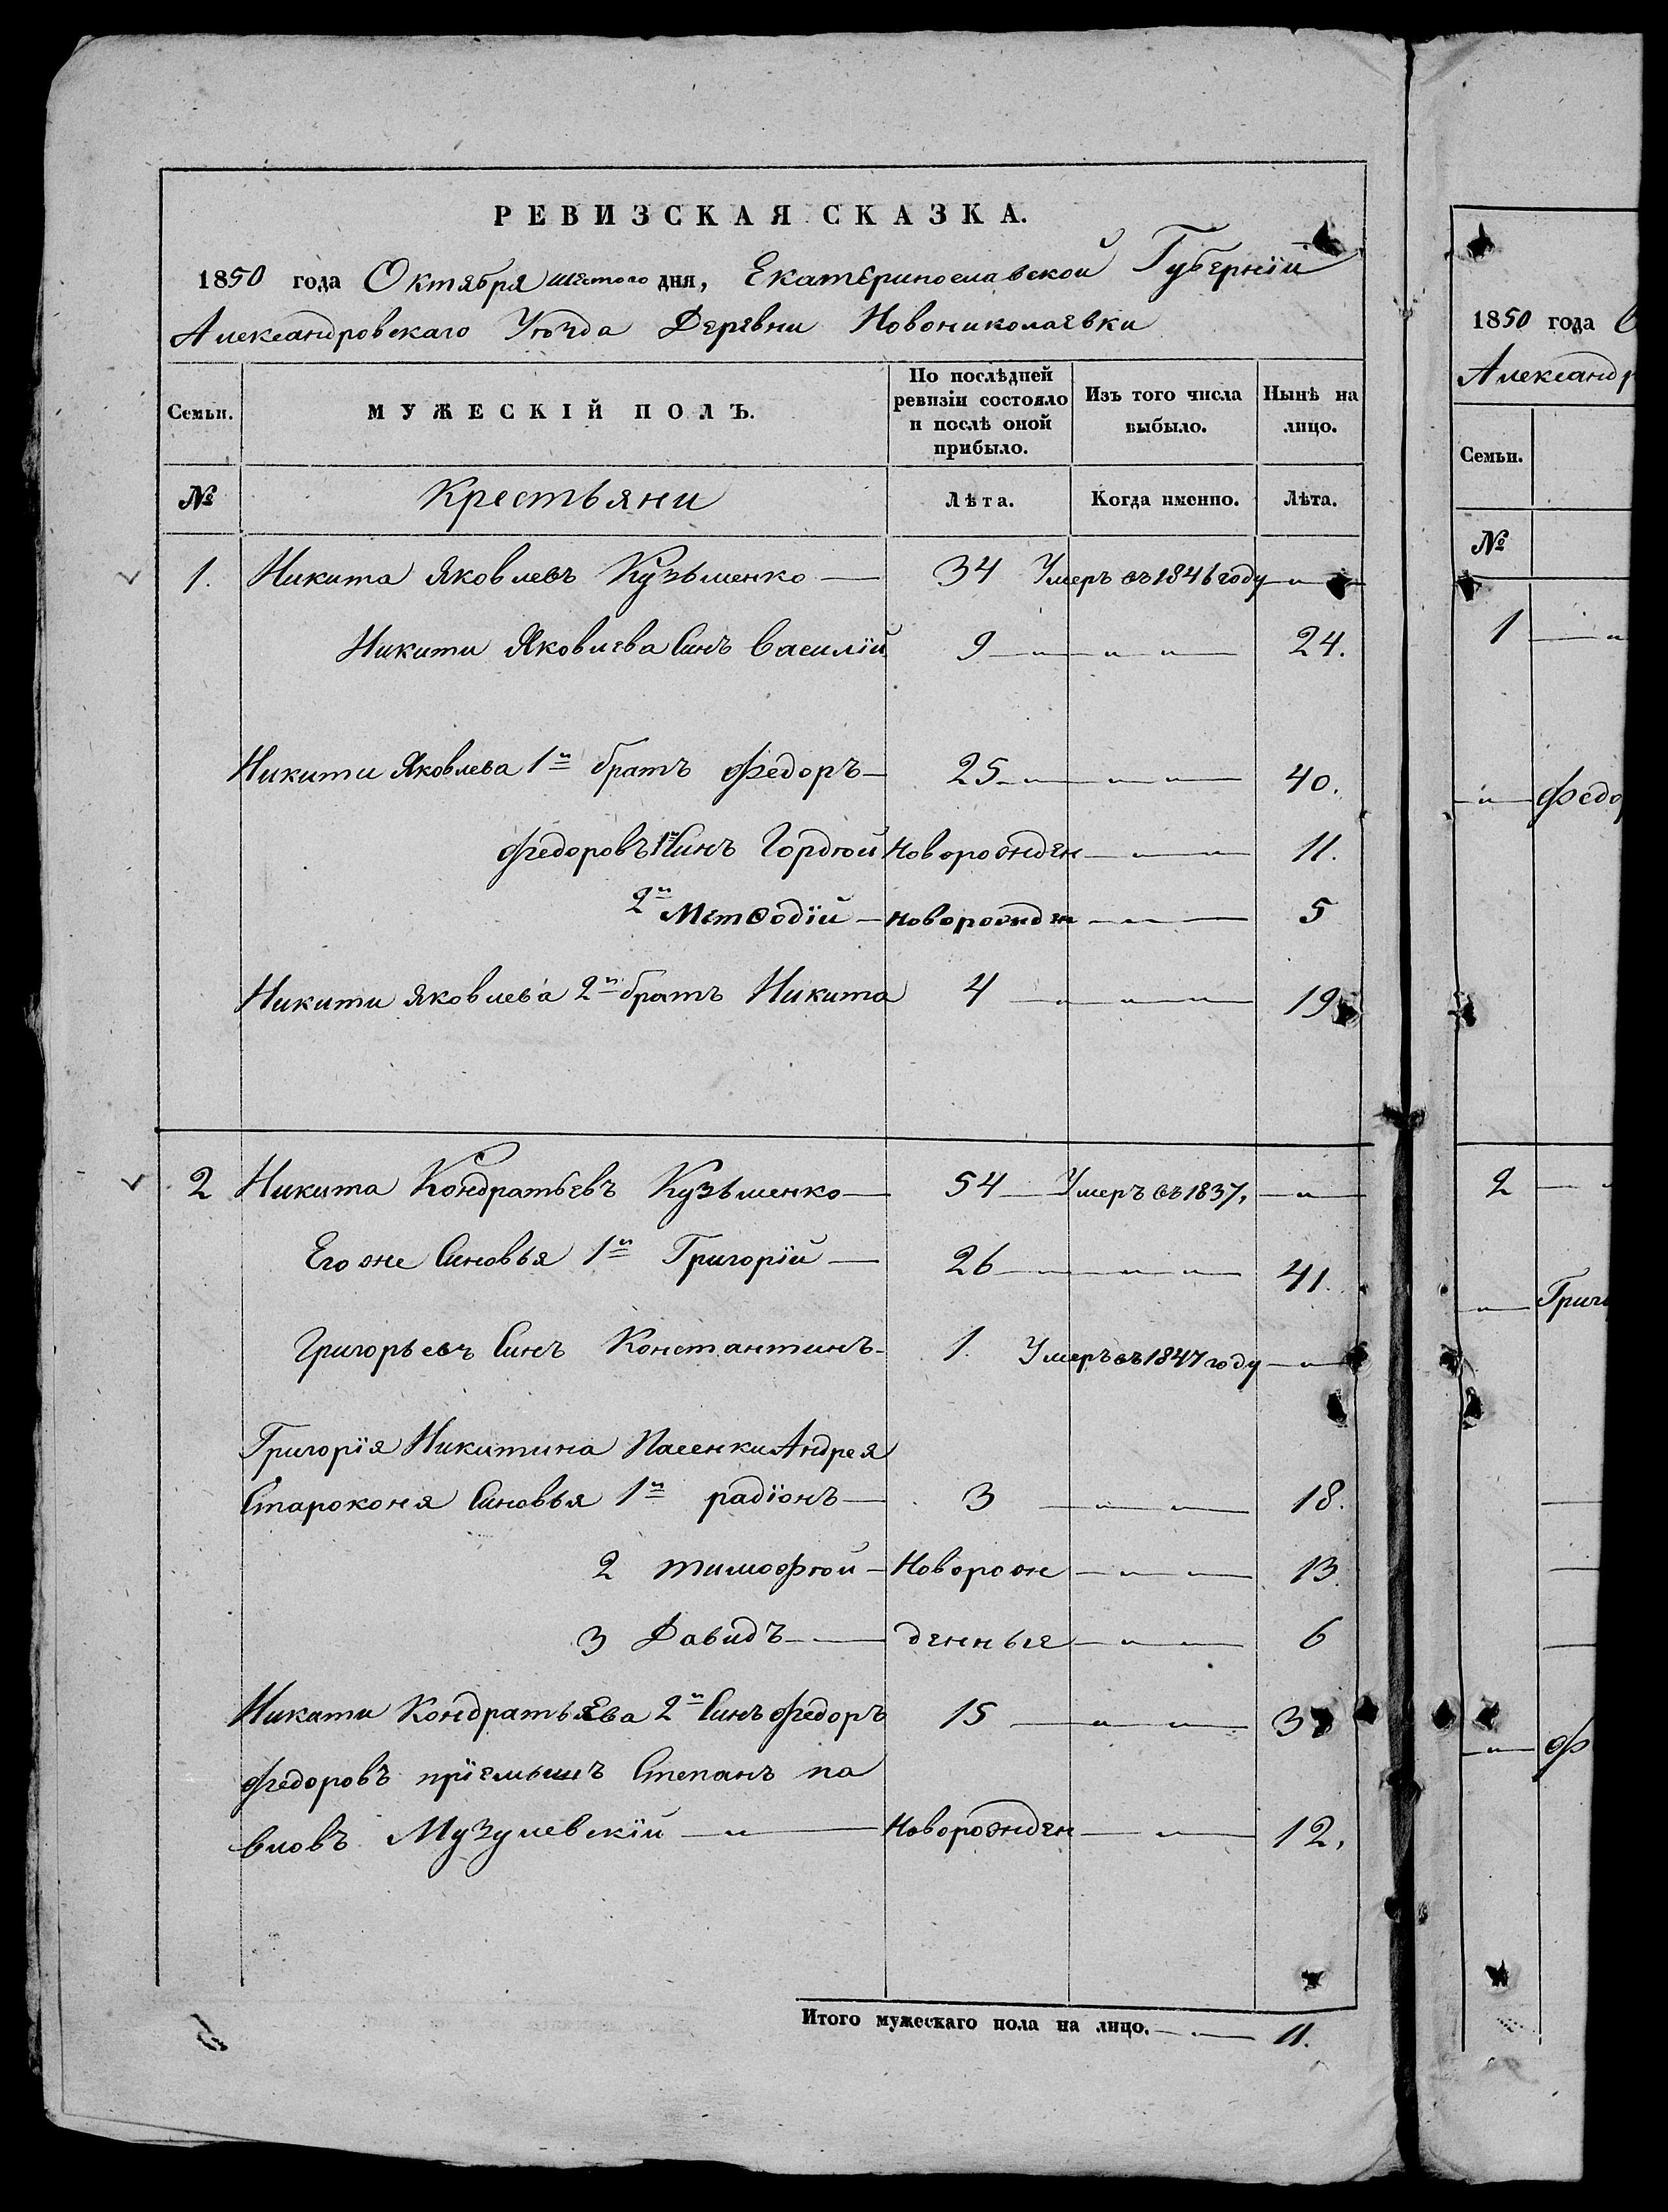 РЕВИЗСКАЯ СКАЗКА.
1850 года Октября шестого дня, Екатеринославской Губернiи
Александровскаго Уѣзда Деревни Новониколаевки
Семьи.
МУЖЕСКIЙ ПОЛЪ.
По послѣдней ревизiи состояло и послѣ оной прибыло.
Изъ того числа выбыло.
Нынѣ на лицо.
№ Крестьяни Лѣта. Когда именно. Лѣта.
1. Никита Яковлевъ Кузьменко — 34 Умеръ въ 1846 году —"—
Никити Яковлева Синъ Василiй 9 —"— " — " — 24.
Никити Яковлева 1й братъ Федоръ — 25 —"— " — " — 40.
Федоровъ 1й Синъ Гордѣй Новорожден — " — " — 11.
2й Меѳодiй — Новорожден — " — 5
Никити Яковлева 2й братъ Никита 4 — " — " — " — 19
2 Никита Кондратьевъ Кузьменко — 54 — Умеръ въ 1837, —"—
Его же Синовья 1й Григорiй — 26 — " — " — " — 41.
Григорьевъ Синъ Константинъ — 1. Умеръ въ 1847 году —"—
Григорiя Никитина Пасенки Андрея
Староконя Синовья 1й радiонъ — 3 — " — " — 18.
2 тимофѣй — Новорож — " — " — 13.
3 Давидъ — денные — " — " — 6
Никити Кондратьева 2й Синъ Федоръ 15 — " — " — 3
Федоровъ прiемышъ Степанъ па
вловъ Музулевскiй — " — Новорожден — " — 12,
Итого мужескаго пола на лицо. — " — 11.
1850 года
Александр
Семьи.
№
1 — "
— " — Федо
2 — "
— " — Григ
— " — Ф